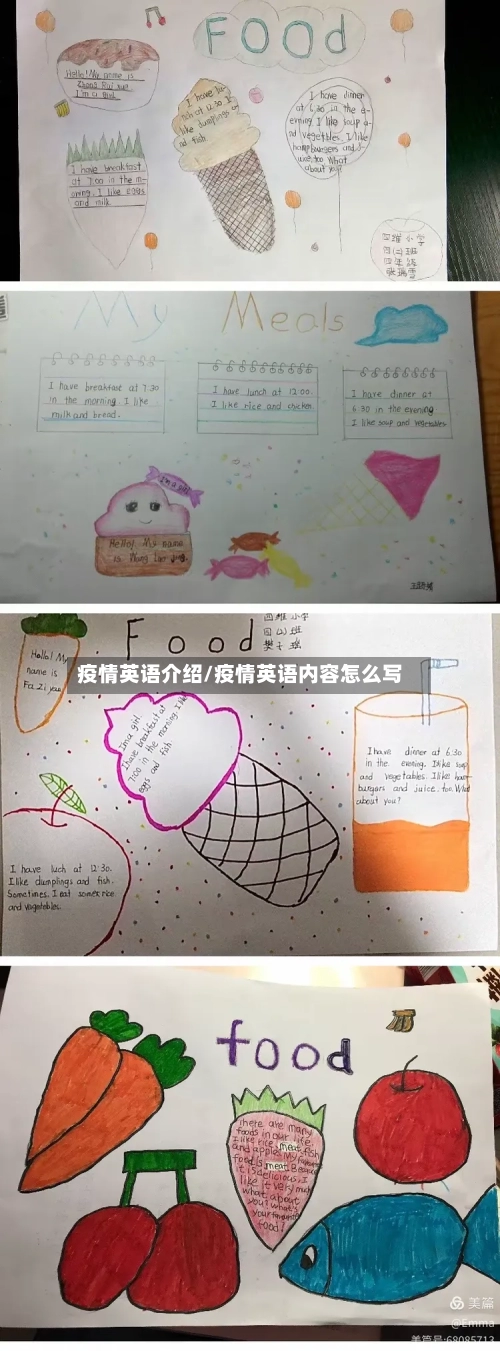 Food
Hello! My name is
I'm a girl.
I have lunch at 12:30. I
like dumplings and
fish.
I have dinner
at 6:30 in the e-
vening. I like soup a-
nd vegetbles. I like
hamburgers and
juice, too. What
about you?
I have breakfast
at 7:00 in the m-
orning. I like eggs
and milk.
四维小学
四(2)班
My Meals
I have breakfast at 7:30
in the morning. I like
milk and bread.
I have lunch at 12:00.
I like rice and chicken
I have dinner at
6:30 in the evening
I like soup and vegetables
I'm a girl
Hello! My name
is Wang
Food
四维小学
四(2)班
Hello! My
name is
疫情英语介绍/疫情英语内容怎么写
I'm a girl.
I have breakfast at
7:00 in the morning. I like
eggs and fish
I have dinner at 6:30
in the evening. I like soup
and vegetables. I like ham-
burgers and juice, too. What
about you?
I have luch at 12:30.
I like dumplings and fish.
Sometimes. I eat some rice
and vegetables.
food
There are many
foods in our life.
I like rice, meat, fish
and apples. My favourite
food is meat. Because
it is delicious. I
like it very much
what about
you? what's
your favourite
food?
美篇
@Emma
美篇号:68085713